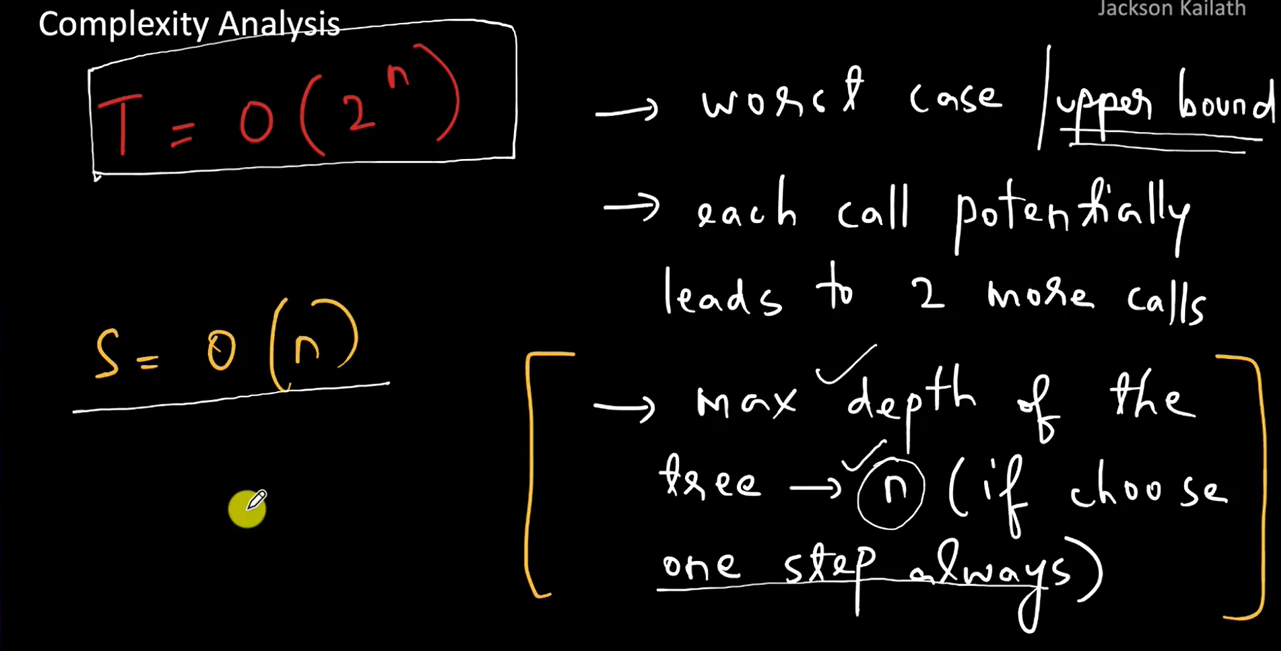 Complexity Analysis
Jackson Kailath
T = O(2^n)
→ worst case / upper bound
→ each call potentially
leads to 2 more calls
S = O(n)
→ max depth of the
tree → n (if choose
one step always)